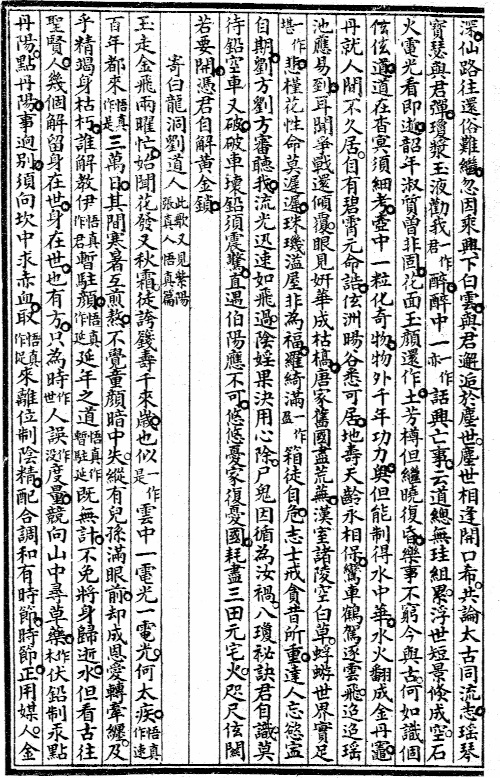 深仙路往還俗難繼忽因乘興下白雲與君邂逅於塵世塵世相逢開口希共論太古同流志瑶琴
寶瑟與君彈瓊漿玉液勸我一作君醉醉中一作亦話興亡事云道總無珪組累浮世短景倏成空石
火電光看即逝韶年淑質曾非固花面玉顏還作土芳樽但繼曉復昏樂事不窮今與古何如識個
伭伭道道在杳冥須細考壺中一粒化奇物物外千年功力奧但能制得水中華水火翻成金丹竈
丹就人間不久居自有碧霄元命誥伭洲暘谷悉可居地壽天齡永相保鸞車鶴駕逐雲飛迢迢瑶
池應易到耳聞爭戰還傾覆眼見姸華成枯槁唐家舊國盡荒蕪漢室諸陵空白草蜉蝣世界實足
一作堪悲槿花性命莫遲遲珠璣溢屋非為福羅綺滿一作盈箱徒自危志士戒貪昔所重達人忘慾寍
自期劉方劉方審聽我流光迅速如飛過陰婬果決用心除尸鬼因循為汝禍八瓊祕訣君自識莫
待鉛空車又破破車壞鉛須震驚直遇伯陽應不可悠悠憂家復憂國耗盡三田元宅火咫尺伭關
若要開憑君自解黃金鎖
寄白龍洞劉道人此歌又見紫陽張真人悟真篇
玉走金飛兩曜忙始聞花發又秋霜徒誇籛壽千來歲也似一作是雲中一電光一電光何太疾悟真作速
百年都來悟真作是三萬日其間寒暑互煎熬不覺童顏暗中失縱有兒孫滿眼前却成恩愛轉牽纏及
乎精竭身枯朽誰解教伊悟真作君暫駐顏悟真作延延年之道悟真作暫駐延既無計不免將身歸逝水但看古往
聖賢人幾個解留身在世身在世也有方只為時悟真作世人誤悟真作沒度量競向山中尋草藥一作木伏鉛制汞點
丹陽點丹陽事迥別須向坎中求赤血取悟真作捉來離位制陰精配合調和有時節時節正用媒人金